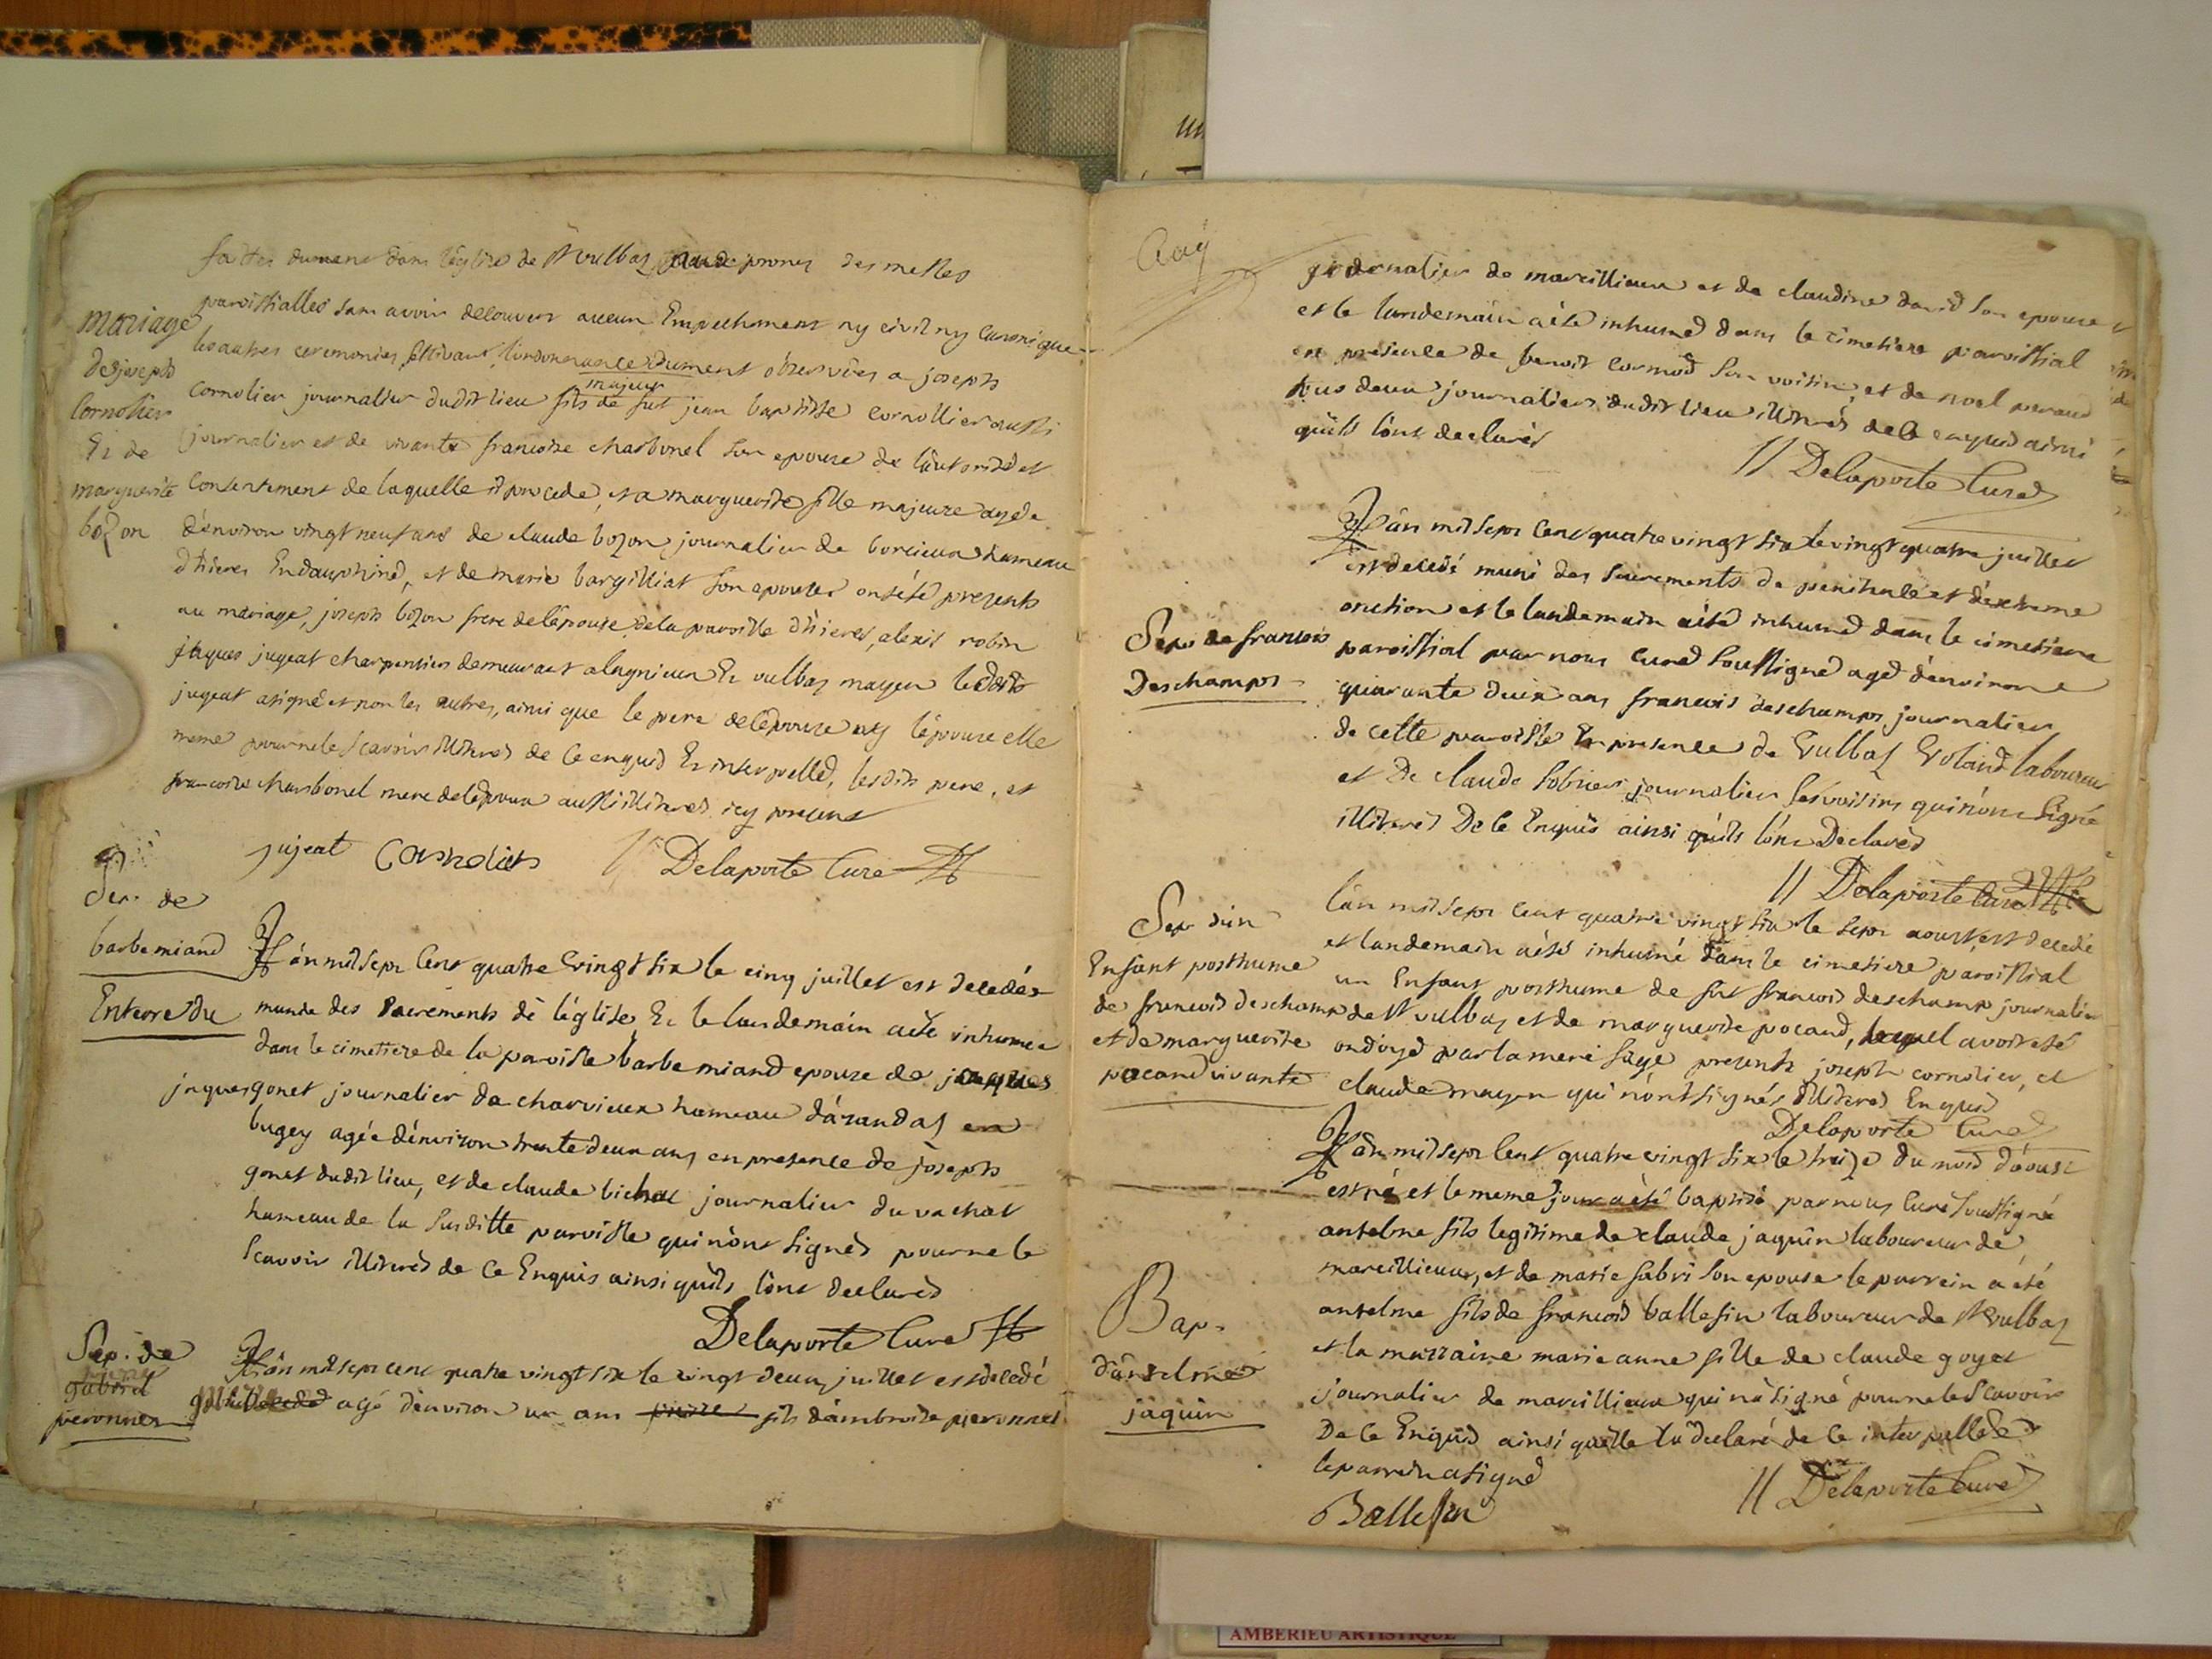 faittes dument dans léglise de St vulbas aux prones des messes
Mariage
de joseph
cornolier
Et de
marguerite
bozon
paroissialles sans avoir decouvert aucun Empechement ny civil ny canonique
les autres ceremonies suivant l'ordonnance dument observées a joseph
majeur
cornolier journalier dudit lieu fils de fut jean baptiste cornollier aussi
journalier et de vivante francoise charbonel son epouse de l'autorité et
consentement de laquelle il procede, et a marguerite fille majeure agée
d'environ vingt neuf ans de claude bozon journalier de bourcieux hameau
d'hieres En dauphiné, et de marie bargilliat son epouse ont été presents
au mariage, joseph bozon frere de l'epouse de la paroisse d'hieres, alexis robin
jaques jugeat charpentier demeurant a lagnieux Et vulbas mayen ledit
jugeat a signé et non les autres, ainsi que le pere de lépouse ny l'épouse elle
meme pour ne le scavoir illiterés de ce enquis Et interpellés, lesdits pere, et
francoise charbonel mere de lépoux aussi illiterés icy present
jujeat Cornolier Delaporte Curé
Sep. de
barbe miand
Enterre du
L'án mil sept cent quatre vingt six le cinq juillet est decedée
munie des sacrements de l'église, Et le landemain a été inhumée
dans le cimetiere de la paroisse barbe miand epouse de jaques
jaques gonet journalier de charvieux hameau d'arandas en
bugey agée d'environ trente deux ans en presence de joseph
gonet dudit lieu, et de claude bichat journalier du vachat
hameau de la susditte paroisse qui n'ont signés pour ne le
scavoir illiterés de ce Enquis ainsi qu'ils l'ont declarés
Delaporte Curé
Sep. de
gabriel
peronnet
L'án mil sept cent quatre vingt six le vingt deux juillet est decedé
agé d'environ un an pierre fils d'ambroise pieronnet
journalier de marcillieux et de claudine david son epouse
et le landemain a été inhumé dans le cimetiere paroissial
en presence de benoit cormod son voisin, et de noel peraud
tous deux journaliers dudit lieu illiterés de ce enquis ainsi
qu'ils l'ont declarés
Delaporte Curé
Sep. de francois
Deschamps
L'án mil sept cent quatre vingt six le vingt quatre juillet
est decedé muni des sacrements de penitence et d'extreme
onction et le landemain a été inhumé dans le cimetiere
paroissial par nous curé soussigné agé d'environ
quarante deux ans francois deschamps journalier
de cette paroisse En presence de Vulbas Volaud laboureur
et De claude sobrier journalier ses voisins qui n'ont signé
illiterés De ce Enquis ainsi qu'ils l'ont Declarés
Delaporte Curé
Sep. d'un
Enfant posthume
de francois deschamp
et de marguerite
pocand vivante
l'án mil sept cent quatre vingt six le sept aoust est decedé
et landemain a été inhumé dans le cimetiere paroissial
un Enfant posthume de fut francois deschamp journalier
de St vulbas et de marguerite pocand, lequel avoit eté
ondoyé par la mere sage presents joseph cornolier, et
claude mayen qui n'ont signés illiterés Enquis
Delaporte Curé
Bap.
d'anselme
jaquin
L'án mil sept cent quatre vingt six le treize du mois d'áoust
est né et le meme jour a été baptisé par nous curé soussigné
anselme fils legitime de claude jaquin laboureur de
marcillieux, et de marie fabri son epouse le parrein a été
anselme fils de francois ballesin laboureur de St Vulbas
et la marraine marie anne fille de claude goyet
journalier de marcillieux qui n'a signé pour ne le scavoir
De ce Enquis ainsi qu'elle l'a declaré de ce interpellée
le parrein a signé
Ballesin Delaporte Curé
AMBERIEU ARTISTIQUE